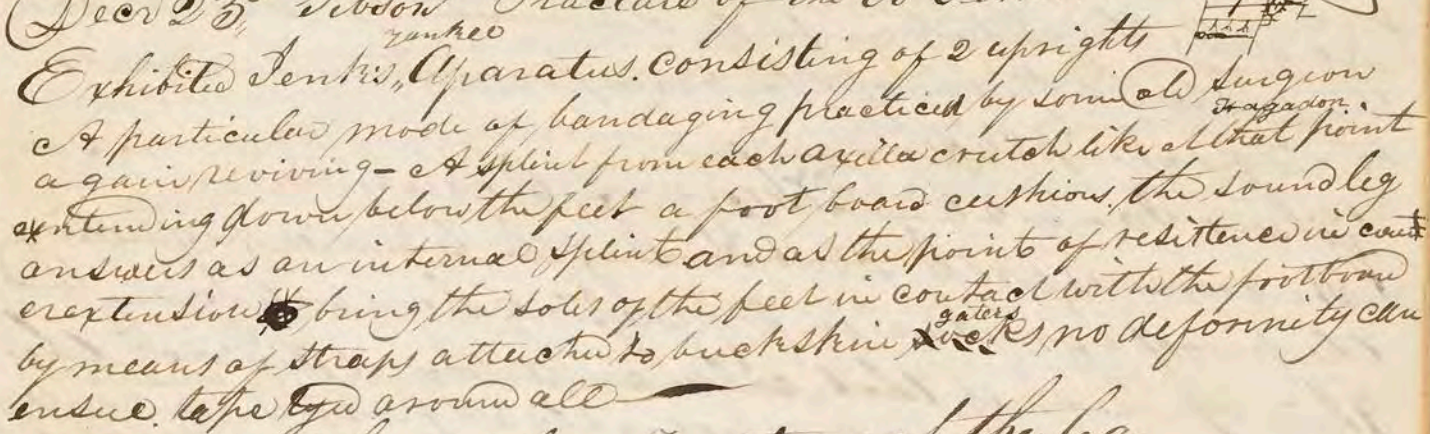 Decr 25, Gibson Fracture of the
yankee
Exhibited Jenks,, Aparatus. consisting of 2 uprights
A particular mode of bandaging practiced by some old surgeon
Hagadon.
again reviving – A splint from each axilla crutch like at that point
extending down below the feet a foot board cushions. the sound leg
answers as an internal splint and as the point of resistence in count
erextension bring the soles of the feet in contact with the footboard
gaters
by means of straps attached to buckskin socks no deformity can
ensue. tape tyed around all